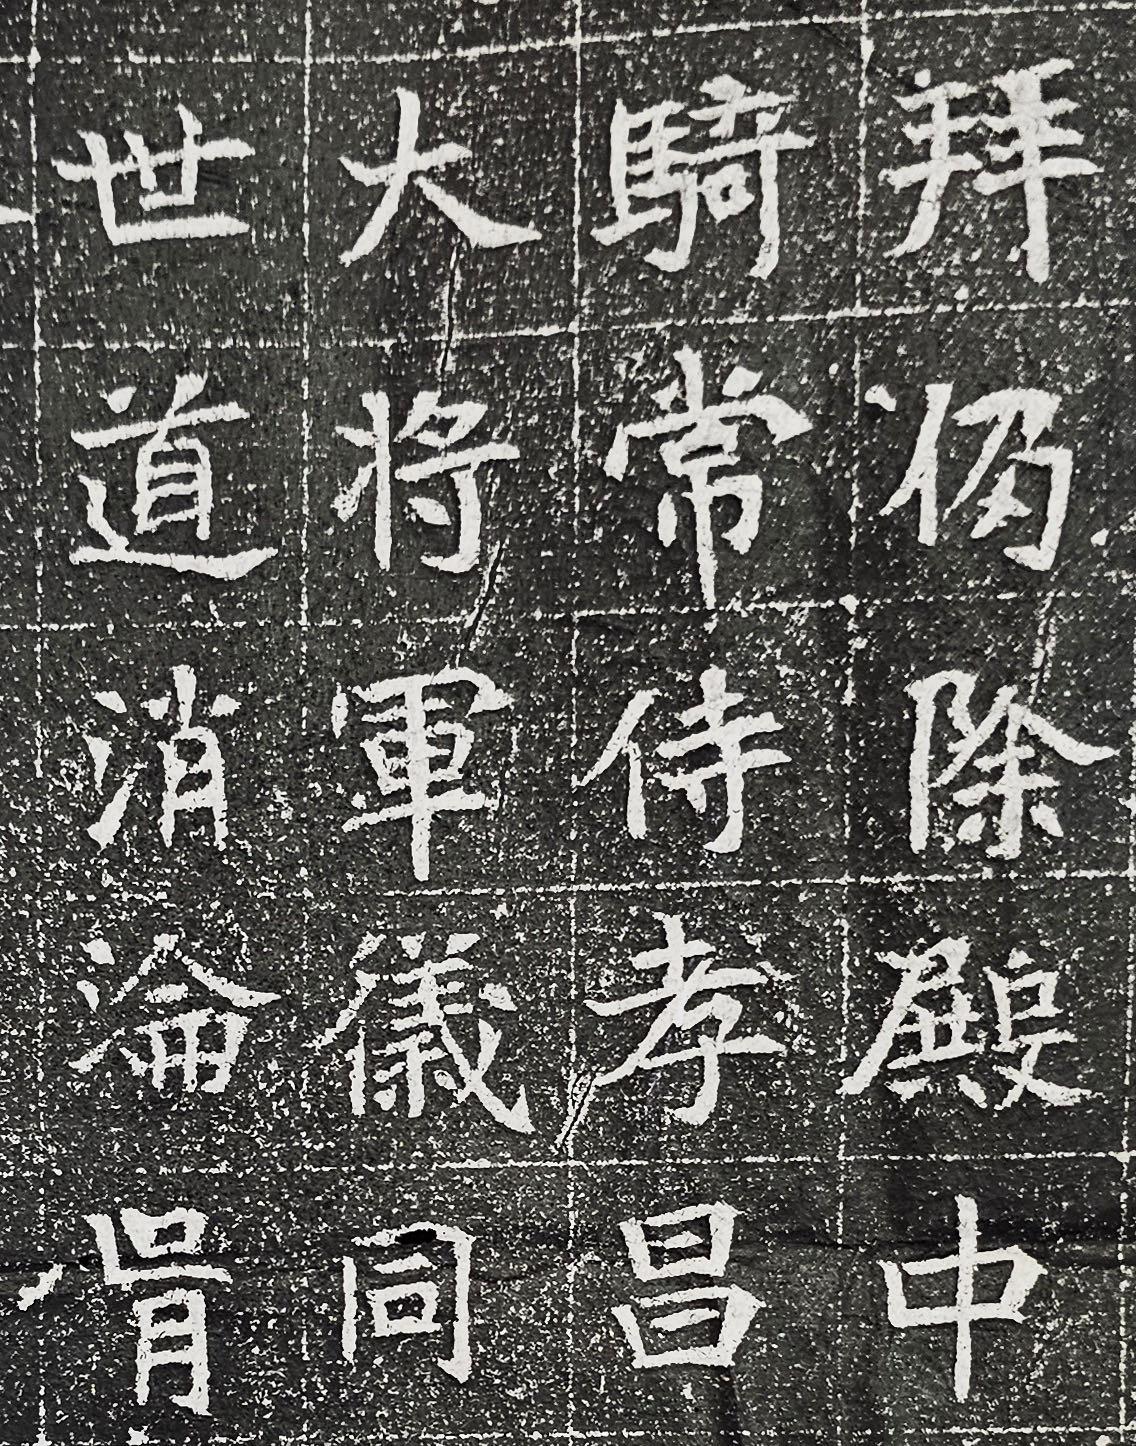 拜仍除殿中
騎常侍孝昌
大将軍儀同
世道消淪胥